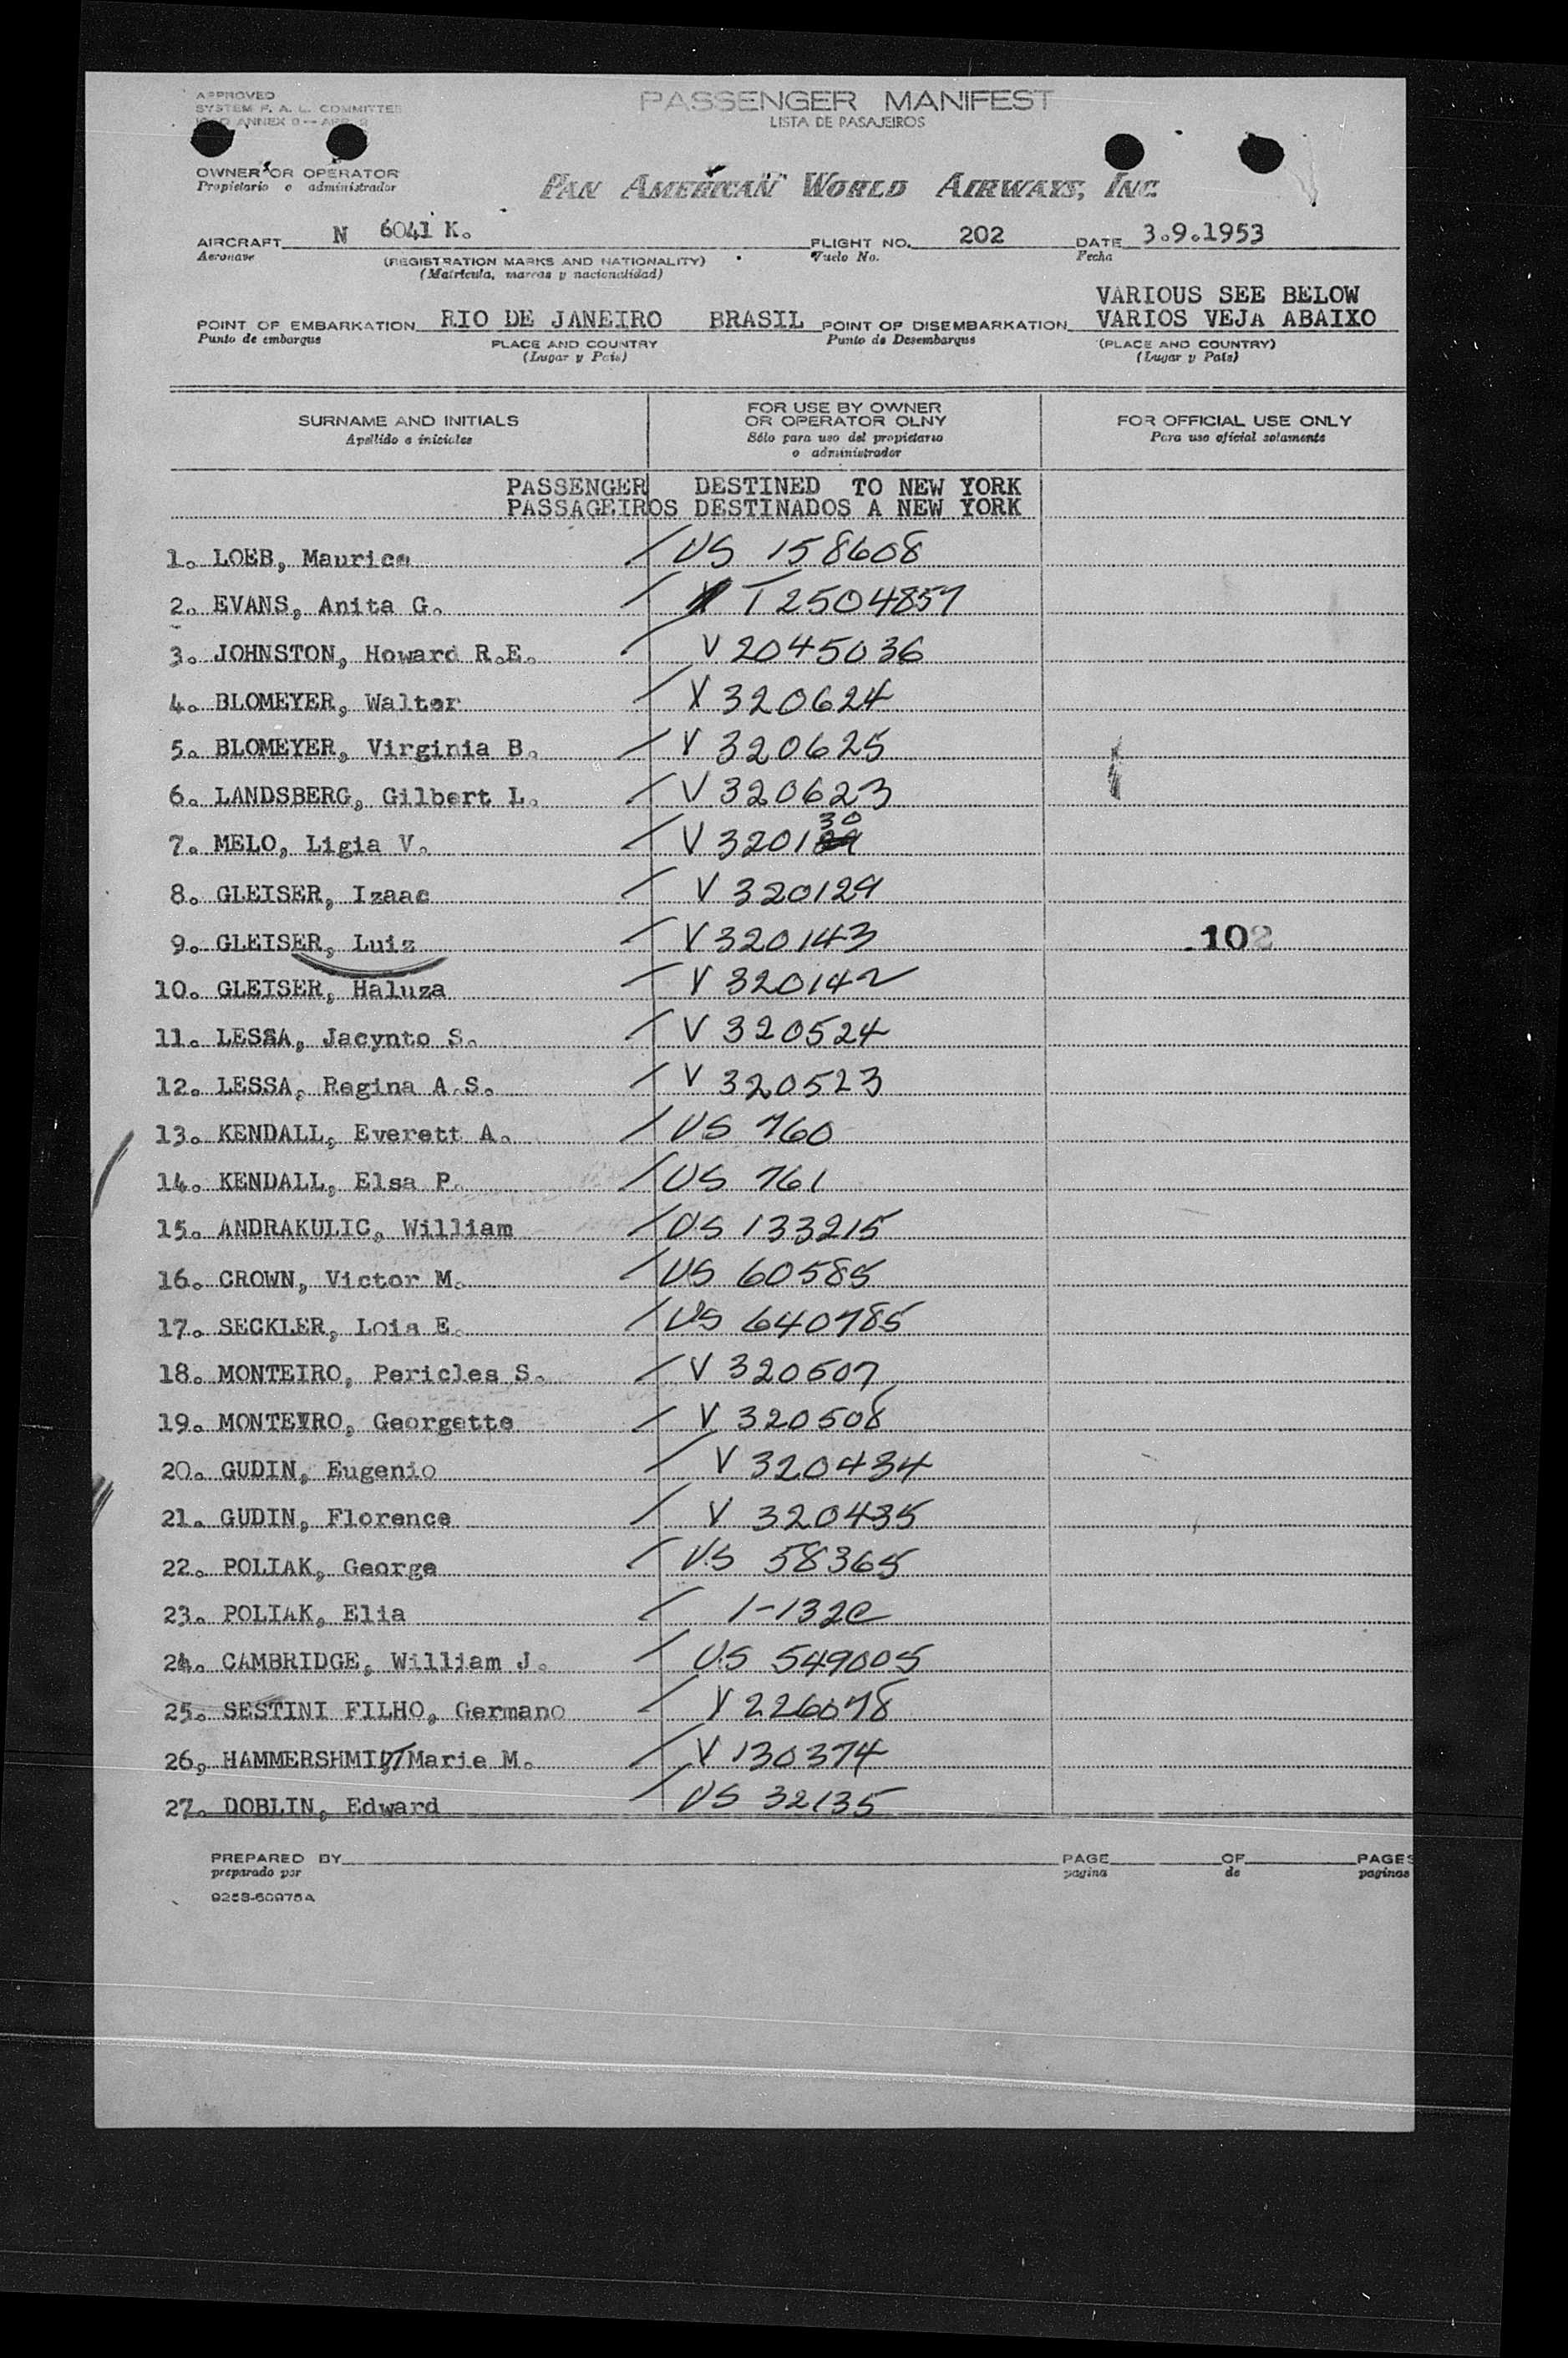 APPROVED
SYSTEM F. A. L. COMMITTEE
ANNEX 9 — APP. 2
PASSENGER MANIFEST
LISTA DE PASAJEIROS
OWNER OR OPERATOR
Propietario o administrador
PAN AMERICAN WORLD AIRWAYS, INC
AIRCRAFT N 6041 K. FLIGHT NO. 202 DATE 3.9.1953
Aeronave (REGISTRATION MARKS AND NATIONALITY) Vuelo No. Fecha
(Matrícula, marcas y nacionalidad)
VARIOUS SEE BELOW
POINT OF EMBARKATION RIO DE JANEIRO BRASIL POINT OF DISEMBARKATION VARIOS VEJA ABAIXO
Punto de embarque PLACE AND COUNTRY Punto de Desembarque (PLACE AND COUNTRY)
(Lugar y País) (Lugar y País)
SURNAME AND INITIALS FOR USE BY OWNER OR OPERATOR OLNY FOR OFFICIAL USE ONLY
Apellido e iniciales Sólo para uso del propietario o administrador Para uso oficial solamente
PASSENGER DESTINED TO NEW YORK
PASSAGEIROS DESTINADOS A NEW YORK
1. LOEB, Maurice / US 158608
2. EVANS, Anita G. / T 2504857
3. JOHNSTON, Howard R.E. / V 2045036
4. BLOMEYER, Walter / V 320624
5. BLOMEYER, Virginia B. / V 320625
6. LANDSBERG, Gilbert L. / V 320623
7. MELO, Ligia V. / V 320130
8. GLEISER, Izaac / V 320129
9. GLEISER, Luiz / V 320143 102
10. GLEISER, Haluza / V 320142
11. LESSA, Jacynto S. / V 320524
12. LESSA, Regina A.S. / V 320523
13. KENDALL, Everett A. / US 760
14. KENDALL, Elsa P. / US 761
15. ANDRAKULIC, William / US 133215
16. CROWN, Victor M. / US 60585
17. SECKLER, Lois E. / US 640785
18. MONTEIRO, Pericles S. / V 320507
19. MONTEIRO, Georgette / V 320508
20. GUDIN, Eugenio / V 320434
21. GUDIN, Florence / V 320435
22. POLIAK, George / US 58365
23. POLIAK, Elia / 1-132C
24. CAMBRIDGE, William J. / US 549005
25. SESTINI FILHO, Germano / V 226078
26, HAMMERSHMIDT, Marie M. / V 130374
27. DOBLIN, Edward / US 32135
PREPARED BY PAGE OF PAGES
preparado por pagina de paginas
9253-60975A